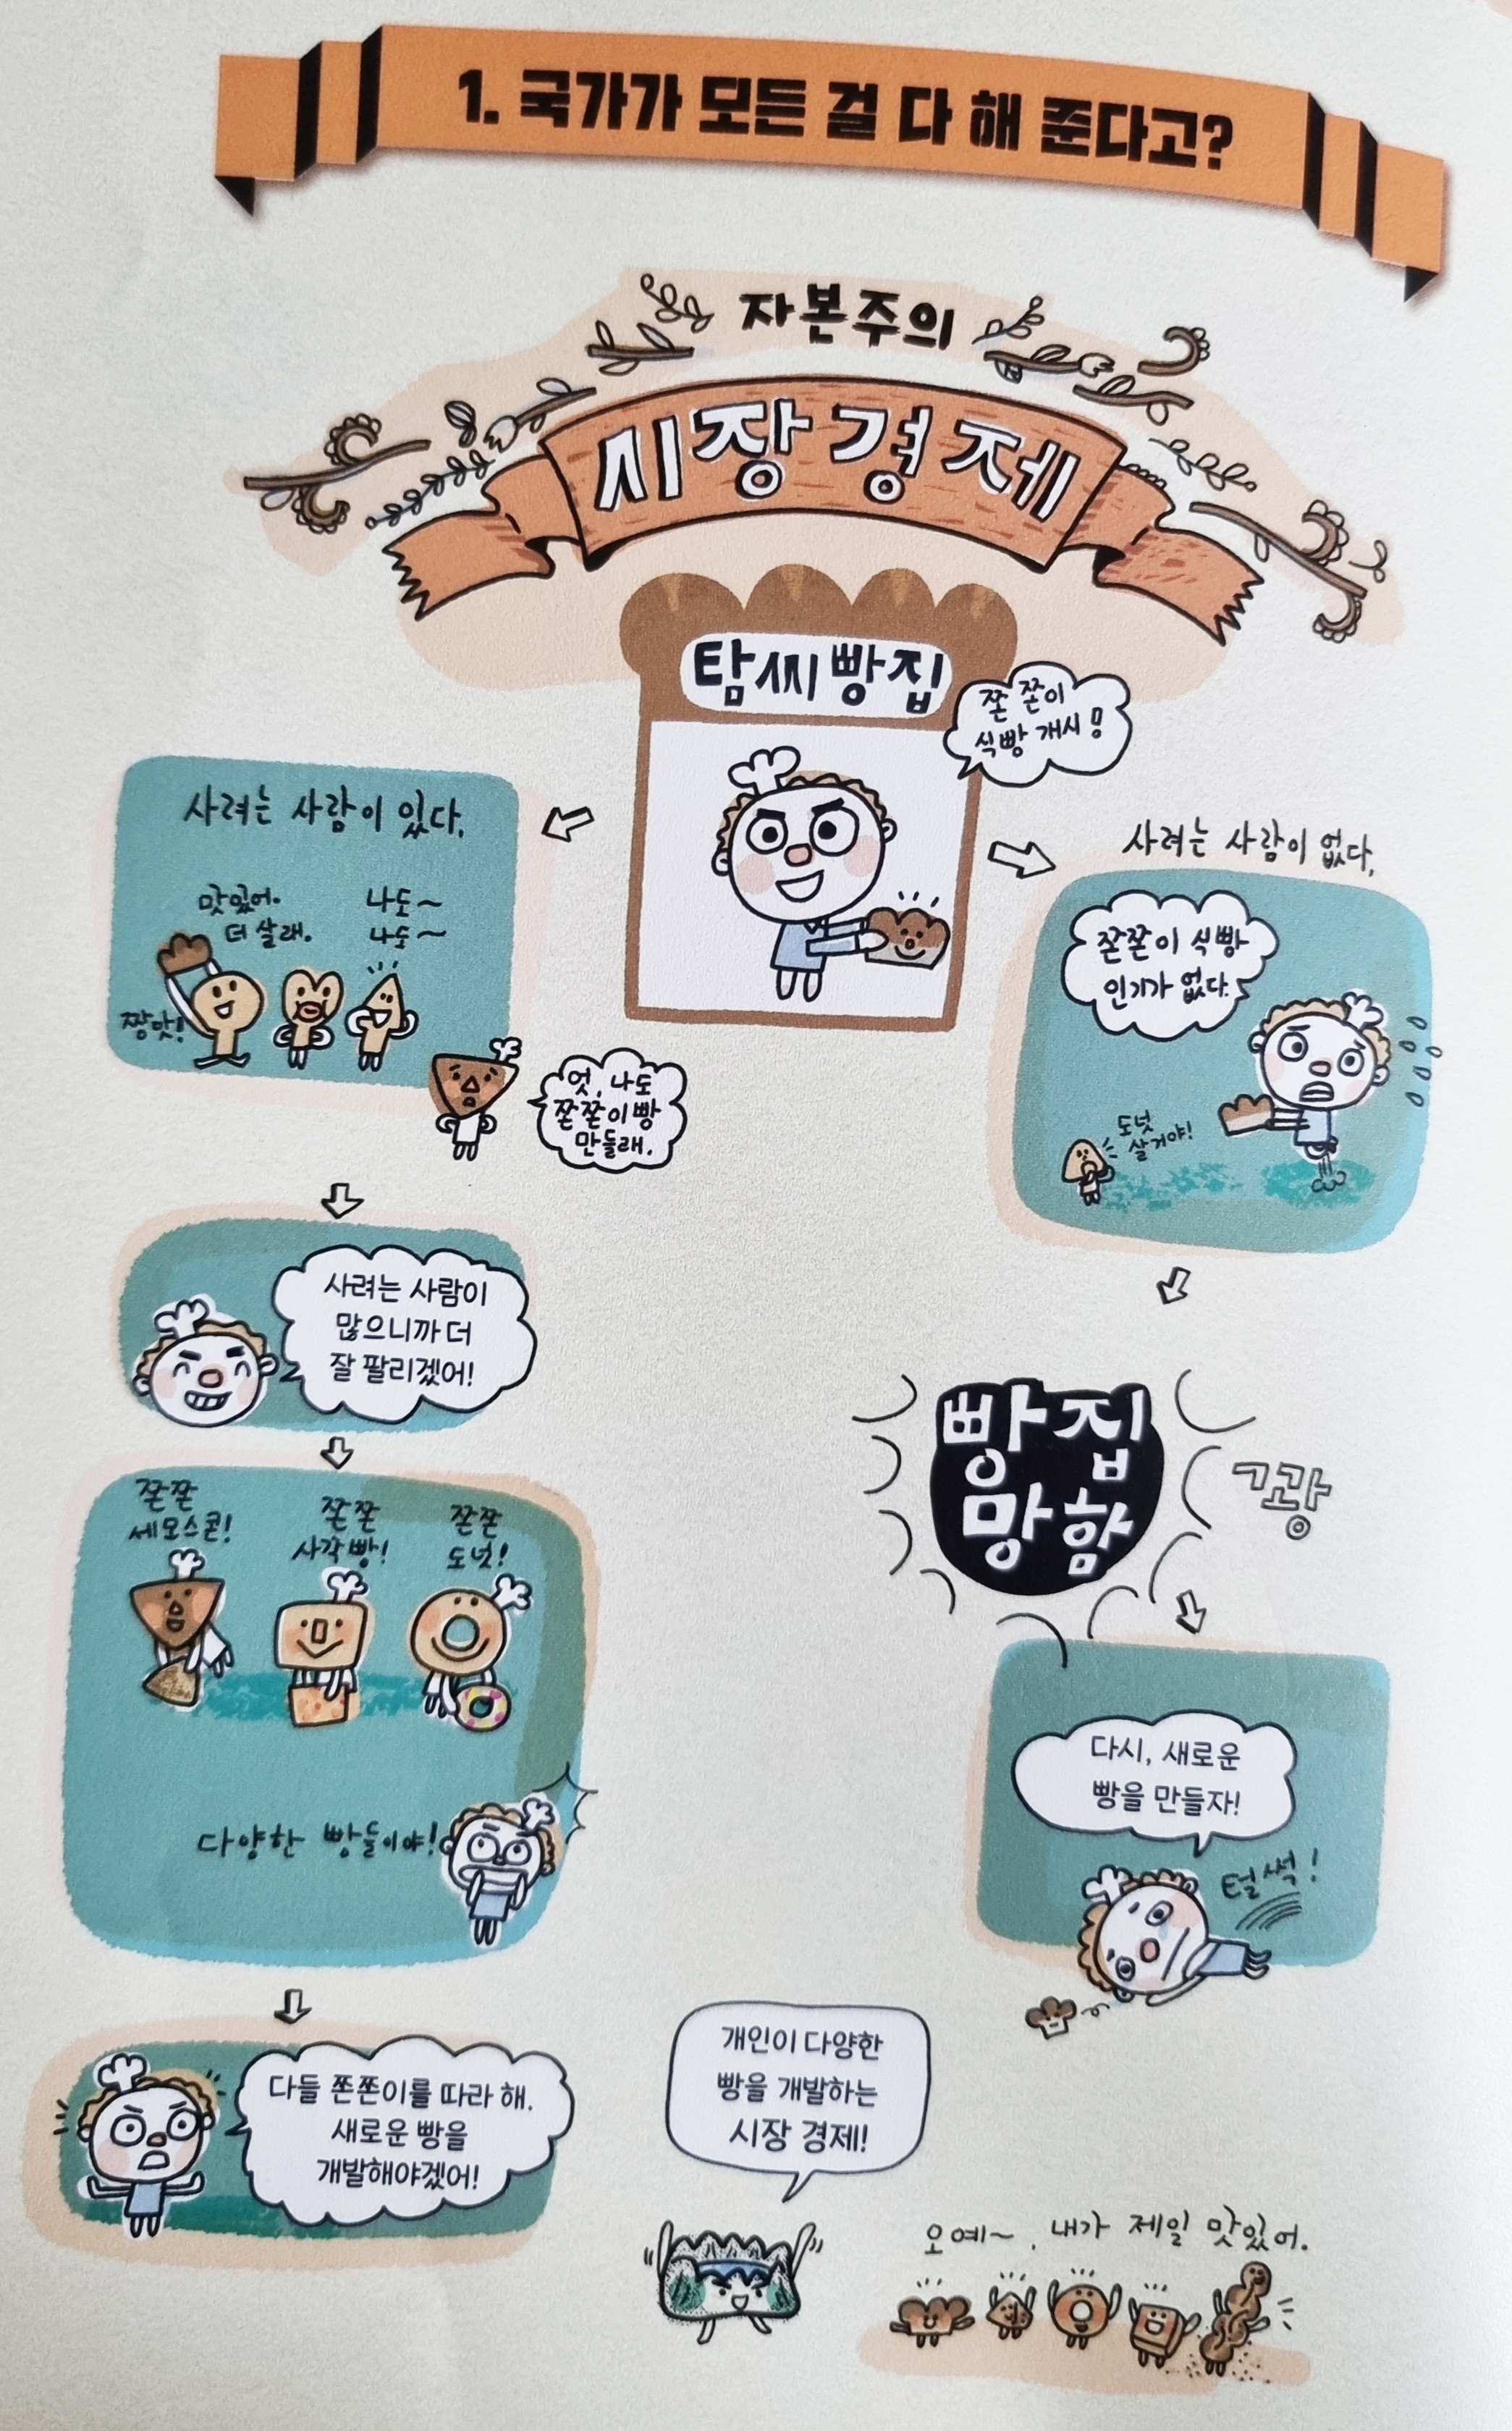 1. 국가가 모든 걸 다 해 준다고?
자본주의
시장 경제
탐씨 빵집
쫀쫀이
식빵 개시!
사려는 사람이 있다.
맛있어.
더 살래.
나도~
나도~
짱맛!
엇, 나도
쫀쫀이 빵
만들래.
사려는 사람이
많으니까 더
잘 팔리겠어!
쫀쫀
세모스콘!
쫀쫀
사각빵!
쫀쫀
도넛!
다양한 빵들이야!
다들 쫀쫀이를 따라 해.
새로운 빵을
개발해야겠어!
사려는 사람이 없다.
쫀쫀이 식빵
인기가 없다.
도넛
살거야!
빵집
망함
꽝
다시, 새로운
빵을 만들자!
털썩!
개인이 다양한
빵을 개발하는
시장 경제!
오예~, 내가 제일 맛있어.